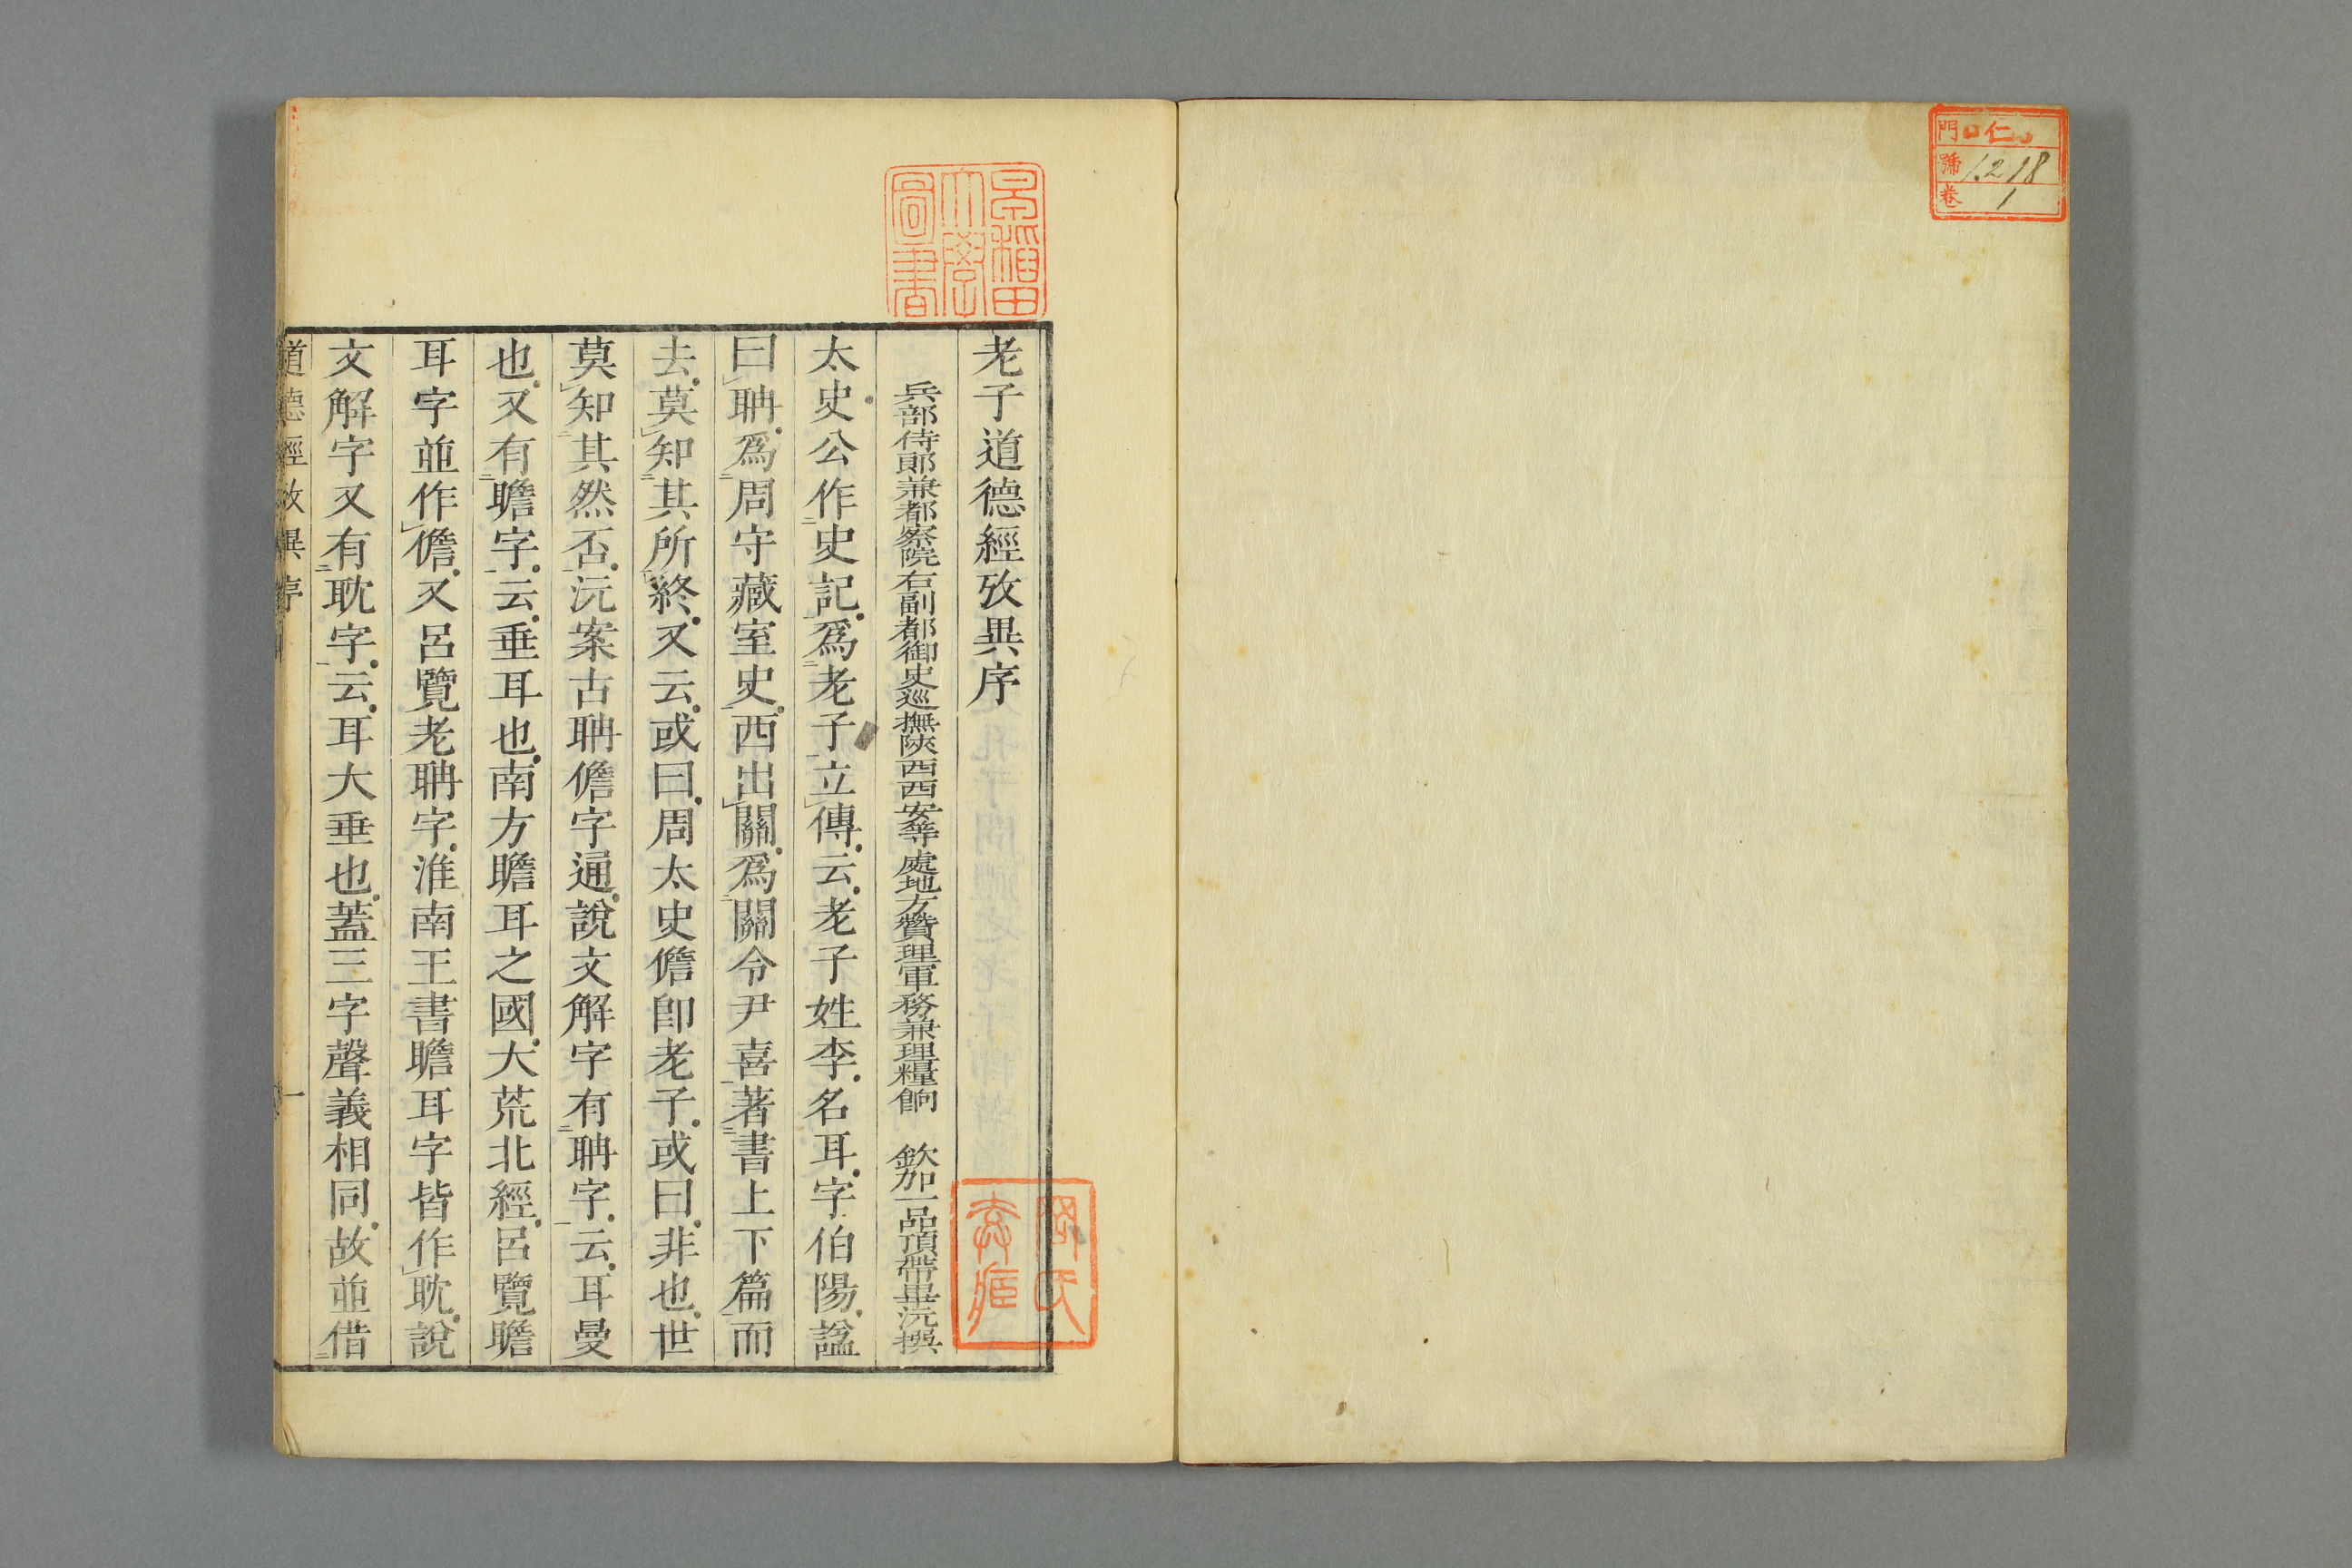 門 仁
號 1218
卷 1
早稲田
大學
圖書
老子道德經攷異序
兵部侍郎兼都察院右副都御史巡撫陝西西安等處地方贊理軍務兼理糧餉 欽加一品頂帶畢沅撰
太史公作史記爲老子立傳云老子姓李名耳字伯陽諡
曰聃爲周守藏室史西出關爲關令尹喜著書上下篇而
去莫知其所終又云或曰周太史儋卽老子或曰非也世
莫知其然否沅案古聃儋字通說文解字有聃字云耳曼
也又有瞻字云垂耳也南方瞻耳之國大荒北經呂覽瞻
耳字並作儋又呂覽老聃字淮南王書瞻耳字皆作耽說
文解字又有耽字云耳大垂也蓋三字聲義相同故並借
道德經攷異序 一